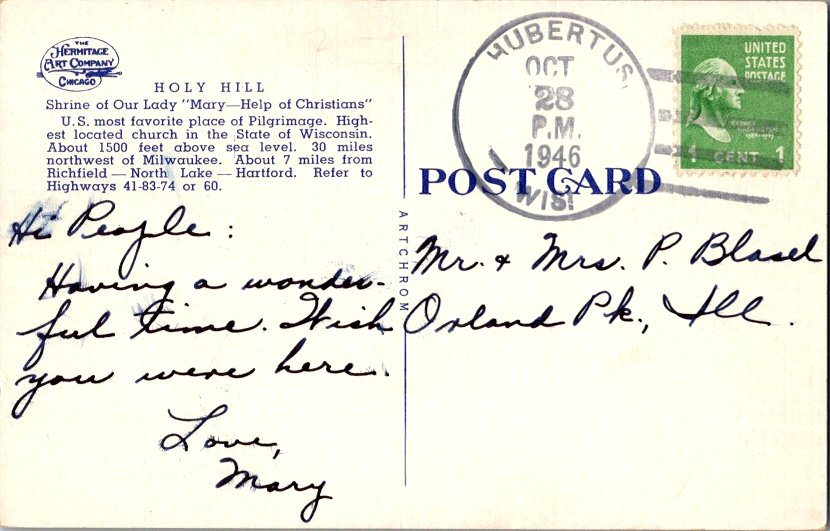 THE
HERMITAGE
ART COMPANY
CHICAGO
HOLY HILL
Shrine of Our Lady "Mary—Help of Christians"
U.S. most favorite place of Pilgrimage. High-
est located church in the State of Wisconsin.
About 1500 feet above sea level. 30 miles
northwest of Milwaukee. About 7 miles from
Richfield — North Lake — Hartford. Refer to
Highways 41-83-74 or 60.
Hi People:
Having a wonder-
ful time. Wish
you were here.
Love,
Mary
ARTCHROM
HUBERTUS,
OCT
28
P.M.
1946
WIS.
UNITED
STATES
POSTAGE
GEORGE
WASHINGTON
1 CENT 1
POST CARD
Mr. & Mrs. P. Blasel
Orland Pk., Ill.